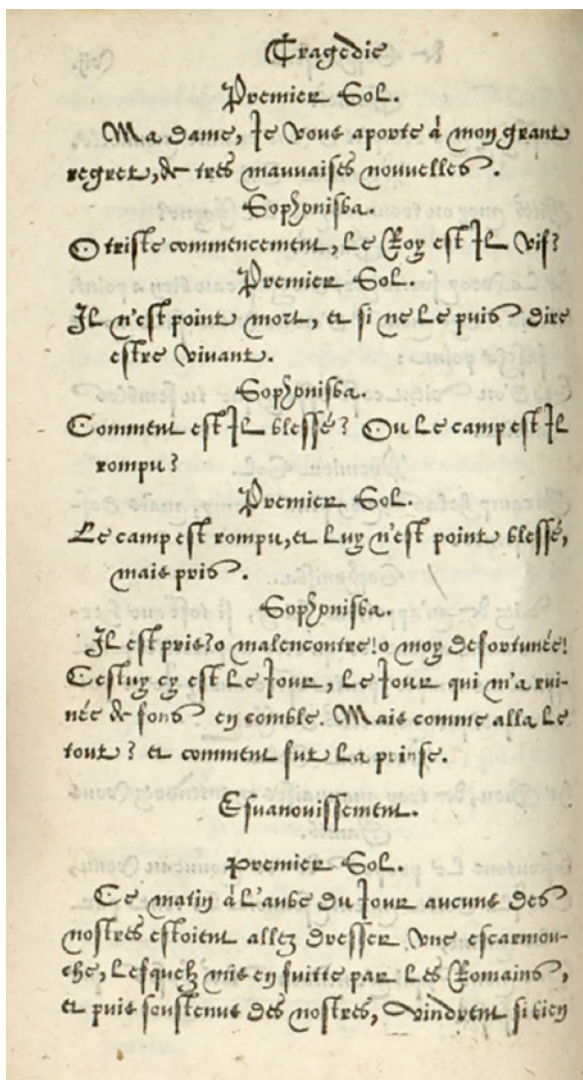 Tragedie
Premier Sol.
Ma dame, Je vous aporte à mon grant
regret, de très mauvaises nouvelles.
Sophonisba.
O triste commencement, Le Roy est Il vif?
Premier Sol.
Il n'est point mort, et si ne Le puis dire
estre vivant.
Sophonisba.
Comment est Il blessé? Ou Le camp est Il
rompu?
Premier Sol.
Le camp est rompu, et Luy n'est point blessé,
mais pris.
Sophonisba.
Il est pris? o malencontre! o moy desortunée!
Cestuy cy est Le Jour, Le Jour qui m'a rui-
née de fons en comble. Mais comme alla Le
tout? et comment fut La prinse.
Esvanouissement.
Premier Sol.
Ce matin à L'aube du Jour aucuns des
nostres estoient allez dresser une escarmou-
che, Lesquelz mis en fuitte par Les Romains,
et puis soustenus des nostres, vindrent si bien